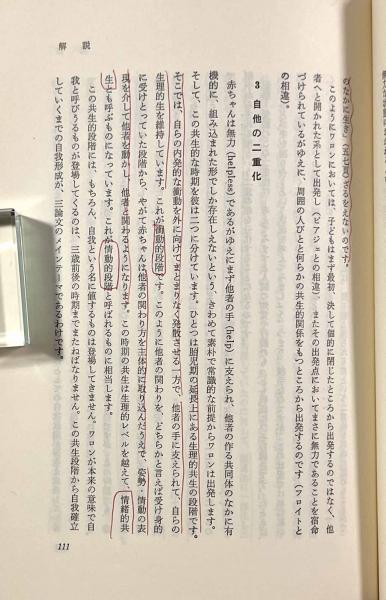 解説
のなかに生き」(五七頁)ざるをえないのです。
このようにワロンにおいては、子どもはまず最初、決して個的に閉じたところから出発するのではなく、他
者へと開かれた系として出発し(ピアジェとの相違)、またその出発点においてまさに無力であることを宿命
づけられているがゆえに、周囲の人びとと何らかの共生的関係をもつところから出発するのです(フロイトと
の相違)。
3 自他の二重化
赤ちゃんは無力(helpless)であるがゆえにまず他者の手(help)に支えられ、他者の作る共同体のなかに有
機的に、組み込まれた形でしか存在しえないという、きわめて素朴で常識的な前提からワロンは出発します。
そして、この共生的な時期を彼は二つに分けています。ひとつは胎児期の延長上にある生理的共生の段階です。
そこでは、自らの内発的な衝動を外に向けてまとまりなく発散させる一方で、他者の手に支えられて、自らの
生理的生を維持しています。これが衝動的段階です。このように他者の関わりを、どちらかと言えば受け身的
に受けとっていた段階から、やがて赤ちゃんは他者の関わり方を主体的に取り込んだうえで、姿勢・情動の表
現を介して他者を動かし、他者と関わるようになります。この時期の共生は生理的レベルを越えて、情緒的共
生とも呼ぶものになっています。これが情動的段階と呼ばれるものに相当します。
この共生的段階には、もちろん、自我という名に値するものは登場してきません。ワロンが本来の意味で自
我と呼びうるものが登場してくるのは、三歳前後の時期までまたねばなりません。この共生段階から自我確立
していくまでの自我形成が、三論文のメインテーマであるわけです。
111